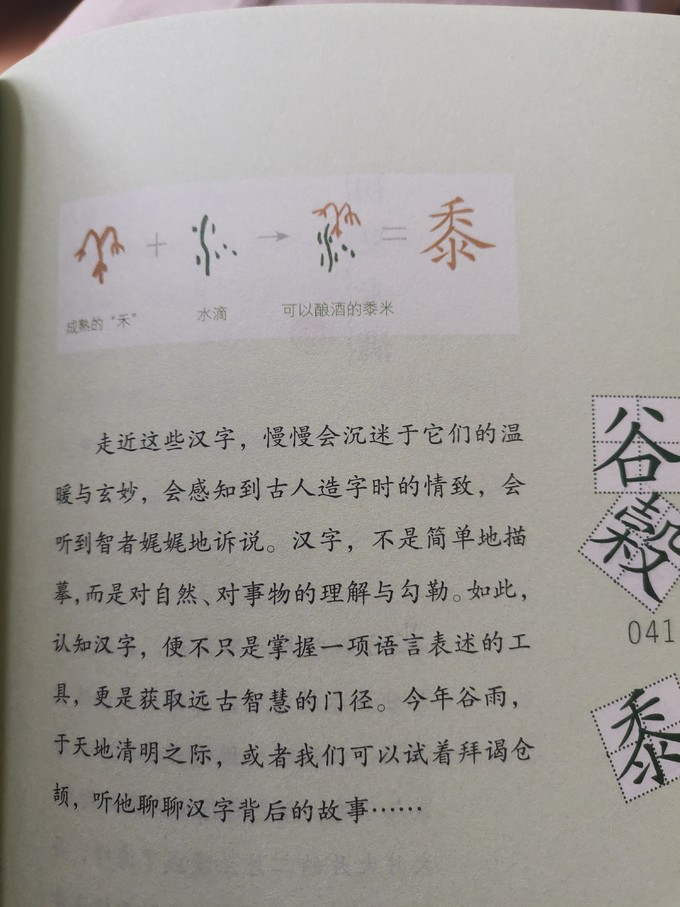 + → = 黍
成熟的“禾” 水滴 可以酿酒的黍米
走近这些汉字，慢慢会沉迷于它们的温
暖与玄妙，会感知到古人造字时的情致，会
听到智者娓娓地诉说。汉字，不是简单地描
摹，而是对自然、对事物的理解与勾勒。如此，
认知汉字，便不只是掌握一项语言表述的工
具，更是获取远古智慧的门径。今年谷雨，
于天地清明之际，或者我们可以试着拜谒仓
颉，听他聊聊汉字背后的故事……
谷
穀
041
黍